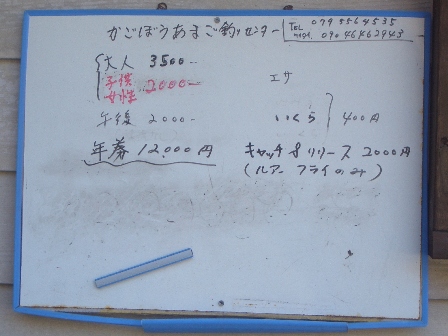 かごぼうあまご釣りセンター
TEL 0795564535
090 46462943
大人 3500-
子供
女性 2000-
エサ
午後 2000-
いくら 400円
年券 12,000円
キャッチ&リリース 2000円
(ルアー フライのみ)